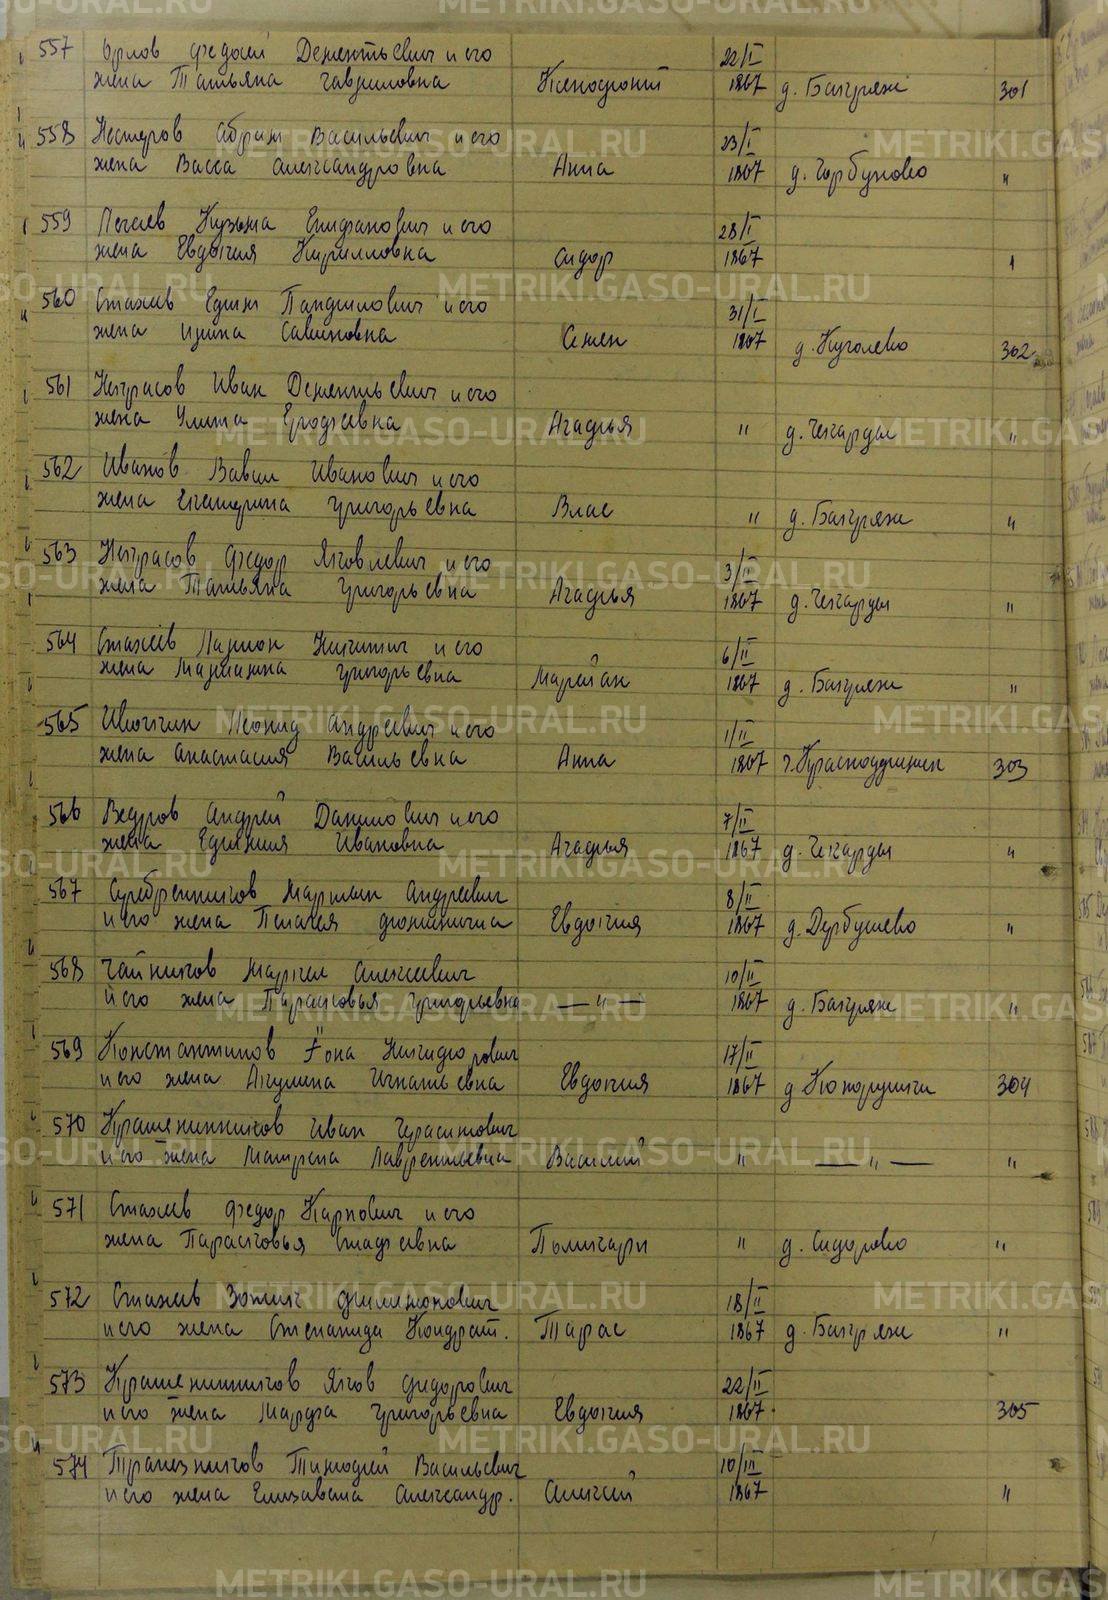 557 Орлов Федосей Дементьевич и его
жена Татьяна Гавриловна Ксенофонт 22/I 1867 д. Багряж 301
558 Нестеров Абрам Васильевич и его
жена Васса Александровна Анна 23/I 1867 д. Горбуново "
559 Пегаев Кузьма Епифанович и его
жена Евдокия Кирилловна Сидор 28/I 1867
560 Стахеев Ефим Панфилович и его
жена Ирина Савиновна Семен 31/I 1867 д. Куголево 302
561 Некрасов Иван Дементьевич и его
жена Улита Ерофеевна Агафья " д. Чекарды "
562 Иванов Вавил Иванович и его
жена Екатерина Григорьевна Влас " д. Багряж "
563 Некрасов Федор Яковлевич и его
жена Татьяна Григорьевна Агафья 3/II 1867 д. Чекарды "
564 Стахеев Ларион Никитич и его
жена Марианна Григорьевна 6/II 1867 д. Багряж "
565 Ивочкин Леонид Андреевич и его
жена Анастасия Васильевна Анна 1/II 1867 303
566 Ведров Андрей Данилович и его
жена Ефимия Ивановна Агафья 7/II 1867 д. Чекарды "
567 Серебренников Мартын Андреевич
и его жена Пелагея Евдокия 8/II 1867 д. Дербушево "
568 Чайников Маркел Алексеевич
и его жена Парасковья Григорьевна — " — 10/II 1867 д. Багряж "
569 Константинов Фома Никифорович
и его жена Акулина Игнатьевна Евдокия 17/II 1867 304
570 Крашенинников Иван Герасимович
и его жена Матрена Лаврентьевна Василий " — " — "
571 Стахеев Федор Карпович и его
жена Парасковья Стафеевна Поликарп " д. Сидорово "
572 Стахеев Зотик Филимонович
и его жена Степанида Кондрат. Тарас 18/II 1867 д. Багряж "
573 Крашенинников Яков Федорович
и его жена Марфа Григорьевна Евдокия 22/II 1867. 305
574 Трапезников Тимофей Васильевич
и его жена Елизавета Александр. Алексей 10/III 1867 "
METRIKI.GASO-URAL.RU